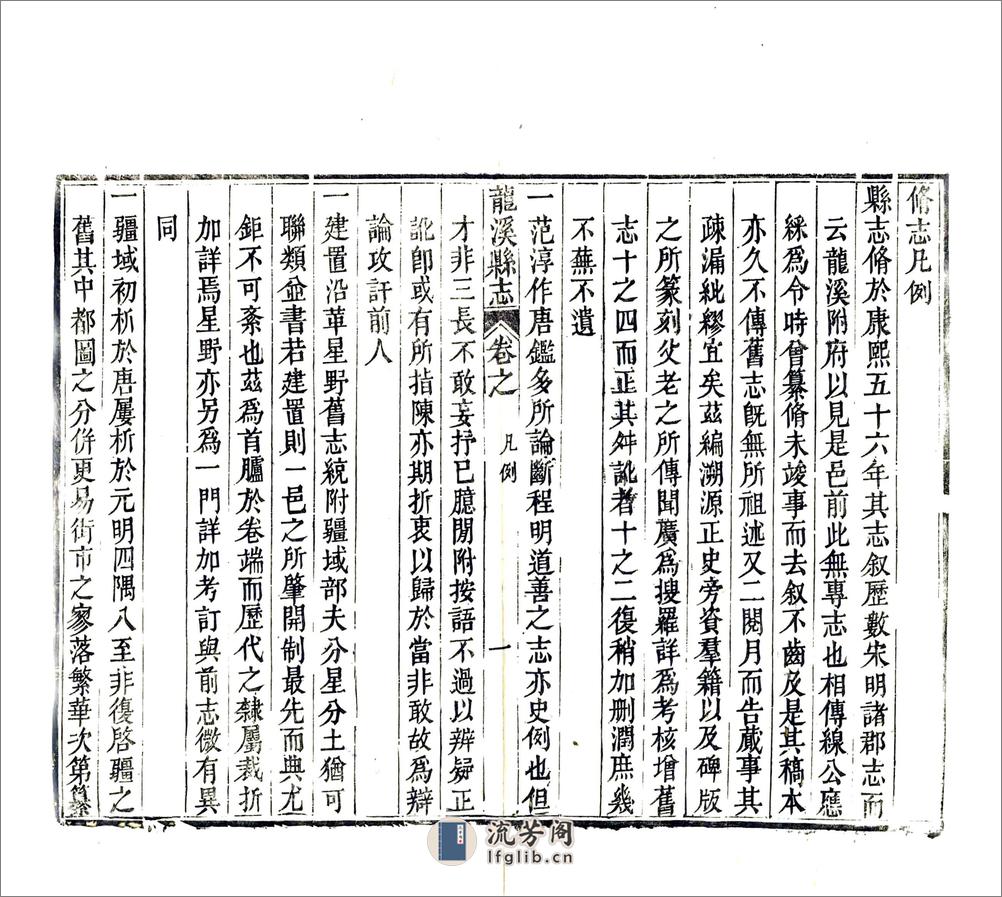 脩志凡例
縣志脩於康熙五十六年其志叙歷數宋明諸郡志而
云龍溪附府以見是邑前此無專志也相傳線公應
綵為令時曾纂脩未竣事而去叙不齒及是其稿本
亦久不傳舊志旣無所祖述又二閱月而告蕆事其
疎漏紕繆宜矣茲編溯源正史旁資羣籍以及碑版
之所篆刻父老之所傳聞廣為搜羅詳為考核增舊
志十之四而正其舛訛者十之二復稍加删潤庶幾
不蕪不遺
一范淳作唐鑑多所論斷程明道善之志亦史例也但
龍溪縣志 卷之 凡例 一
才非三長不敢妄抒已臆閒附按語不過以辨疑正
訛卽或有所指陳亦期折衷以歸於當非敢故為辯
論攻訐前人
一建置沿革星野舊志統附疆域部夫分星分土猶可
聯類並書若建置則一邑之所肇開制最先而典尤
鉅不可紊也茲為首臚於卷端而歷代之隸屬裁折
加詳焉星野亦另為一門詳加考訂與前志微有異
同
一疆域初析於唐屢析於元明四隅八至非復啓疆之
舊其中都圖之分併更易街市之寥落繁華次第纂
流芳阁
lfglib.cn